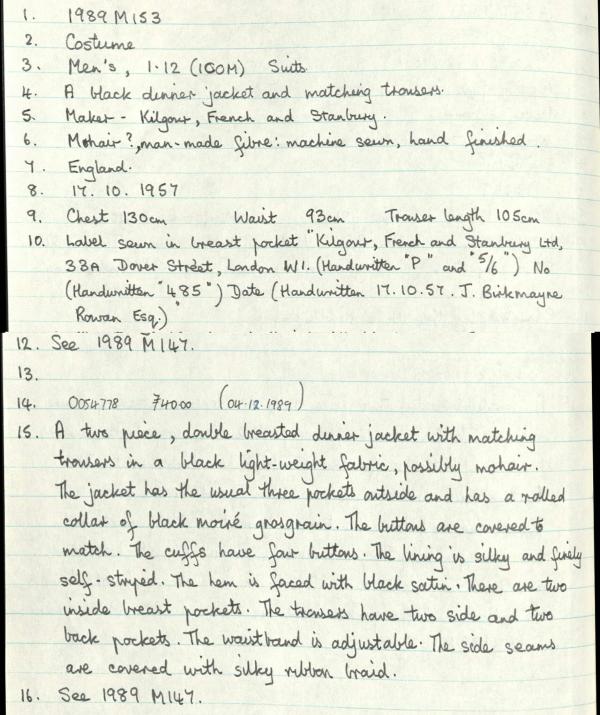 1. 1989 M153
2. Costume
3. Men's, 1.12 (100M) Suits
4. A black dinner jacket and matching trousers.
5. Maker - Kilgour, French and Stanbury.
6. Mohair?, man-made fibre: machine sewn, hand finished.
7. England.
8. 17. 10. 1957
9. Chest 130cm Waist 93cm Trouser length 105cm
10. Label sewn in breast pocket "Kilgour, French and Stanbury Ltd,
33A Dover Street, London W1. (Handwritten "P" and "5/6") No
(Handwritten "485") Date (Handwritten 17.10.57. J. Birkmayne
Rowan Esq.)"
12. See 1989 M147.
13.
14. 0054778 740.00 (04.12.1989)
15. A two piece, double breasted dinner jacket with matching
trousers in a black light-weight fabric, possibly mohair.
The jacket has the usual three pockets outside and has a rolled
collar of black moiré grosgrain. The buttons are covered to
match. The cuffs have four buttons. The lining is silky and finely
self-striped. The hem is faced with black satin. There are two
inside breast pockets. The trousers have two side and two
back pockets. The waistband is adjustable. The side seams
are covered with silky ribbon braid.
16. See 1989 M147.